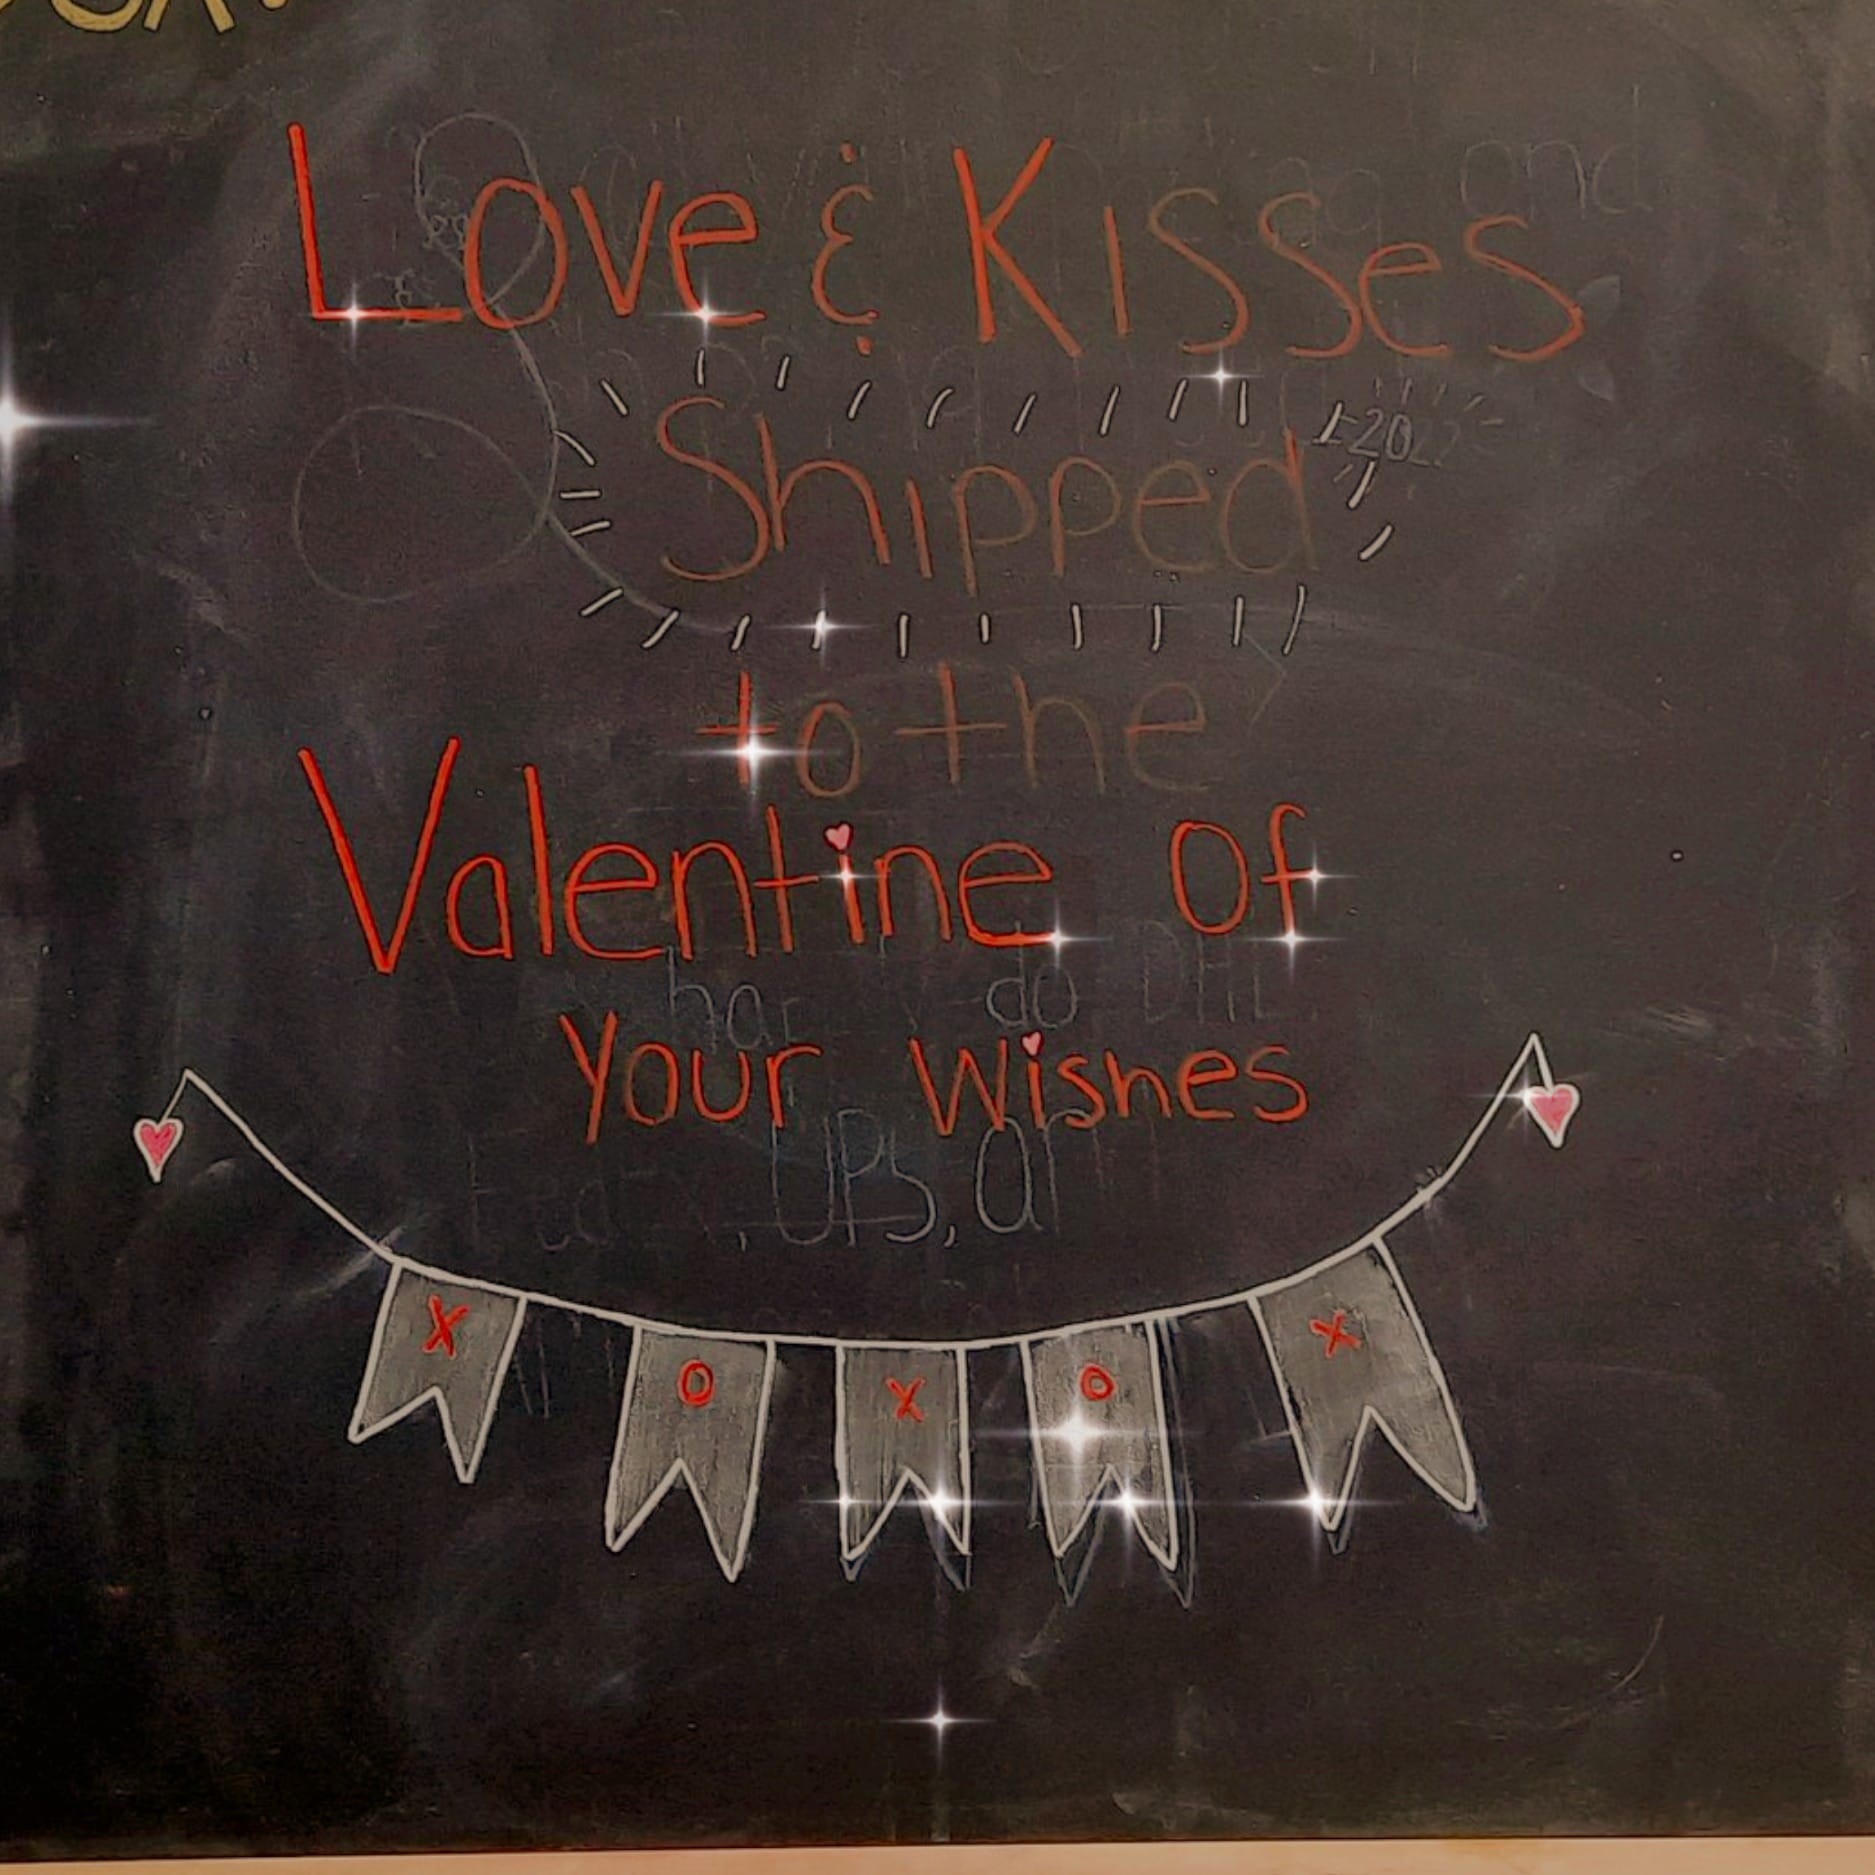 Love & Kisses
Shipped
to the
Valentine Of
Your Wishes
do DHL
UPS, or
X O X O X